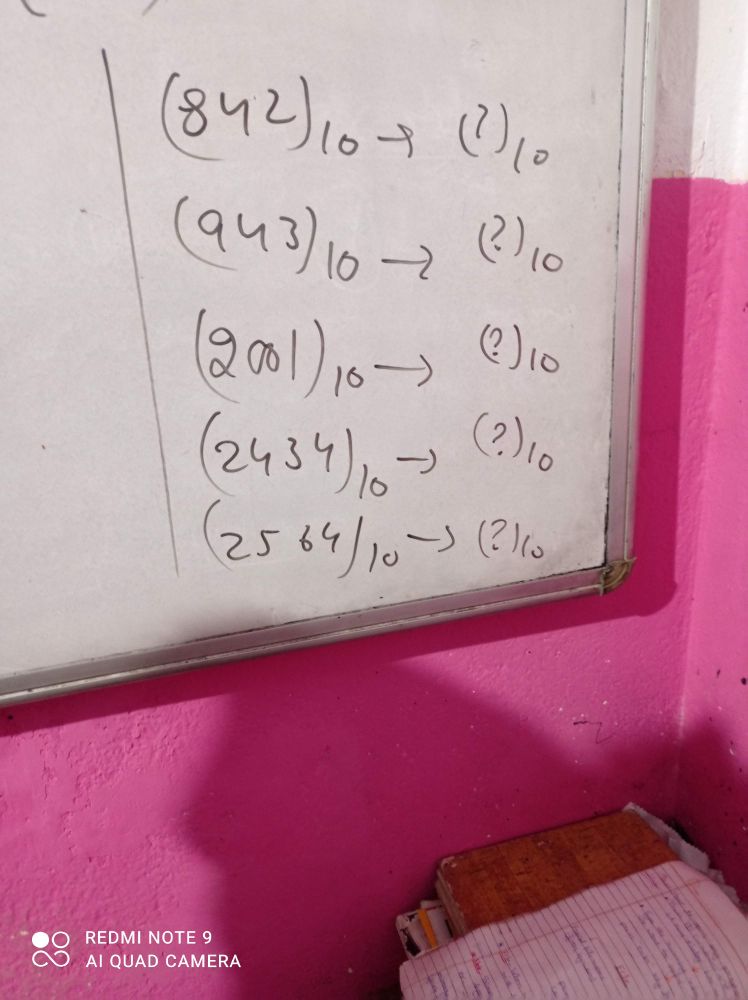 (842)10 → (?)10
(943)10 → (?)10
(2001)10 → (?)10
(2434)10 → (?)10
(2564)10 → (?)10
REDMI NOTE 9
AI QUAD CAMERA